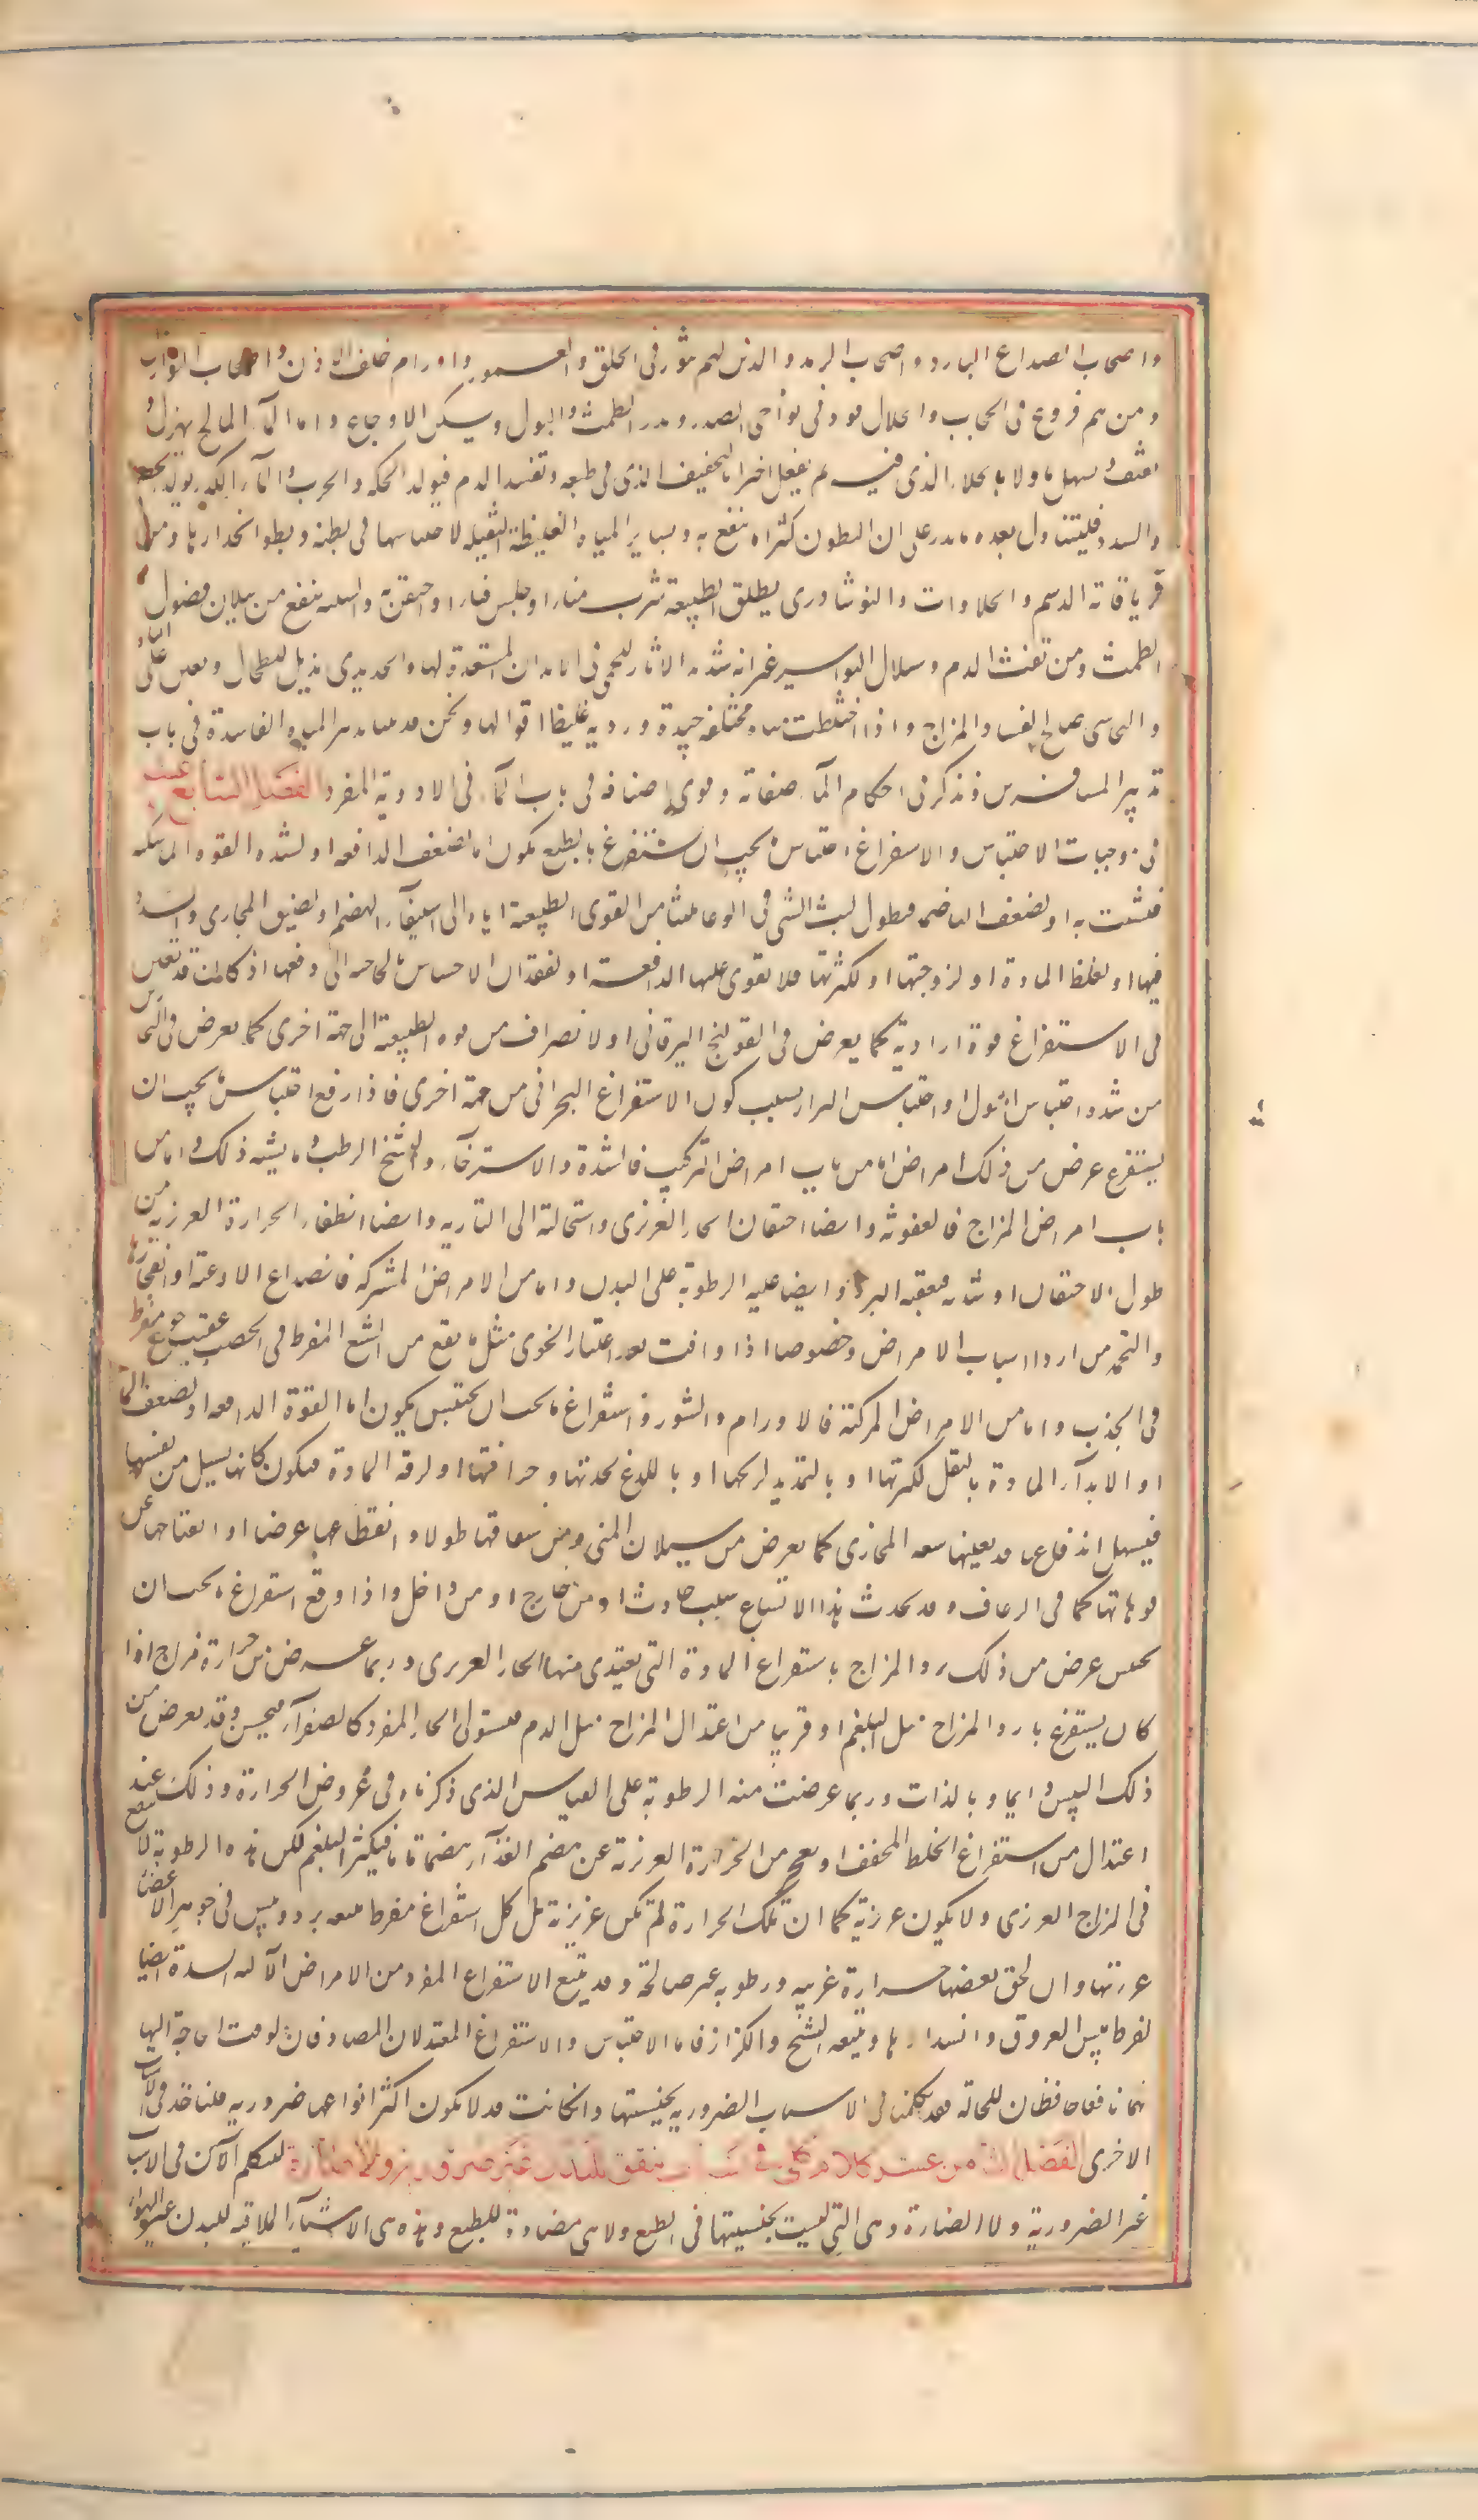 واصحاب الصداع البارد واصحاب الرمد والذين لهم بثور فى الحلق والعمور واورام خلف الاذن واصحاب النوازل
ومن بهم قروح فى الحجاب وانحلال فرد فى نواحى الصدر ويدر الطمث والبول ويسكن الاوجاع واما المآء المالح يهزل و
يقشف ويسهل اولا بالجلاء الذى فيه ثم يعقل اخرا بالتجفيف الذى فى طبعه ويفسد الدم فيولد الحكة والجرب والمآء الكدر يولد الحصى
والسدد فليتناول بعده ما يدر على ان المبطون كثيرا ما ينتفع به وبسائر المياه الغليظة الثقيلة لاحتباسها فى بطنه وبطو انحدارها ومن
ترياقاته الدسم والحلاوات والنوشادرى يطلق الطبيعة شرب منها او جلس فيها او احتقن به والشبية ينفع من سيلان فضول
الطمث ومن نفث الدم وسيلان البواسير غير انه شديد الاثارة للحمى فى الابدان المستعدة لها والحديدى يذيل الطحال ويعين على الباه
والنحاسى صالح لفساد المزاج واذا اختلطت مياه مختلفة جيدة وردية غلبها اقواها ونحن قد بينا تدبير المياه الفاسدة فى باب
تدبير المسافرين ونذكر فى احكام المآء وصفاته وقوى اصنافه فى باب المآء فى الادوية المفردة الفصل السابع عشر
فى موجبات الاحتباس والاستفراغ احتباس ما يجب ان يستفرغ بالطبع يكون اما لضعف الدافعة او لشدة القوة الماسكة
فتشبث به او لضعف الهاضمة فيطول لبث الشى فى الوعا تلبثا من القوى الطبيعة اياه الى استيفآء الهضم او لضيق المجارى والسدد
فيها او لغلظ المادة او لزوجتها او لكثرتها فلا يقوى عليها الدافعة او لفقدان الاحساس بالحاجة الى دفعها اذ كانت قد تعين
فى الاستفراغ قوة ارادية كما يعرض فى القولنج اليرقانى او لانصراف من قوة الطبيعة الى جهة اخرى كما يعرض فى البحارين
من شدة احتباس البول او احتباس البراز بسبب كون الاستفراغ البحرانى من جهة اخرى فاذا وقع احتباس ما يجب ان
يستفرغ عرض من ذلك امراض اما من باب امراض التركيب فالسدة والاسترخآء والتشنج الرطب وما يشبه ذلك واما من
باب امراض المزاج فالعفونة وايضا احتقان الحار الغريزى واستحالته الى النارية وايضا انطفاء الحرارة الغريزية من
طول الاحتقان او شدته فيعقبه البرد وايضا غلبة الرطوبة على البدن واما من الامراض المشتركة فانصداع الاوعية وانفجارها
والتخمة من اردا اسباب الامراض وخصوصا اذا وافت بعد اعتياد الخوى مثل ما يقع من الشبع المفرط فى الخصب عقيب جوع مفرط
فى الجذب واما من الامراض المركبة فالاورام والبثور واستفراغ ما يجب ان يحتبس يكون اما القوة الدافعة او لضعف الماسكة
او الايذآء المادة بالثقل لكثرتها او بالتمديد لريحها او باللذع لحدتها وحرافتها او لرقة المادة فيكون كانها يسيل من نفسها
فيسهل اندفاعها وقد يعينها سعة المجارى كما يعرض من سيلان المنى ومن انشقاقها طولا وانقطاعها عرضا او انفتاحها عن
فوهاتها كما فى الرعاف وقد يحدث هذا الاتساع بسبب حادث او من خارج او من داخل واذا وقع استفراغ ما يجب ان
يحتبس عرض من ذلك برد المزاج باستفراغ المادة التى يغتذى منها الحار الغريزى وربما عرض منه حرارة مزاج اذا
كان يستفرغ بارد المزاج مثل البلغم او قريبا من اعتدال المزاج مثل الدم فيستولى الحار المفرد كالصفرآء فيسخن وقد يعرض من
ذلك اليبس دايما وبالذات وربما عرضت منه الرطوبة على القياس الذى ذكرناه فى عروض الحرارة وذلك عند
اعتدال من استفراغ الخلط المجفف او بعجز من الحرارة الغريزية عن هضم الغذآء هضما تاما فيكثر البلغم لكن هذه الرطوبة لا ينفع
فى المزاج الغريزى ولا يكون غريزية كما ان تلك الحرارة لم تكن غريزية بل كل استفراغ مفرط يتبعه برد ويبس فى جوهر الاعضاء
وغريزتها وان لحق بعضها حرارة غريبة ورطوبة غير صالحة وقد يتبع الاستفراغ المفرد من الامراض الآلية السدة ايضا
لفرط يبس العروق وانسدادها ويتبعه التشنج والكزاز فاما الاحتباس والاستفراغ المعتدلان المصادفان لوقت الحاجة اليها
فهما نافعان حافظان للحالة فقد تكلمنا فى الاسباب الضرورية بجنسيتها وانكانت قد لا يكون اكثر انواعها ضرورية فلناخذ فى الاسباب
الاخرى الفصل الثامن عشر كلام كلى فى اسباب يتفق للبدن غير ضرورية ولا ضارة لنتكلم الآن فى الاسباب
غير الضرورية ولا الضارة وهى التى ليست بجنسيتها فى الطبع ولا هى مضادة للطبع وهذه هى الاشيآء الملاقية للبدن غير الهوآء